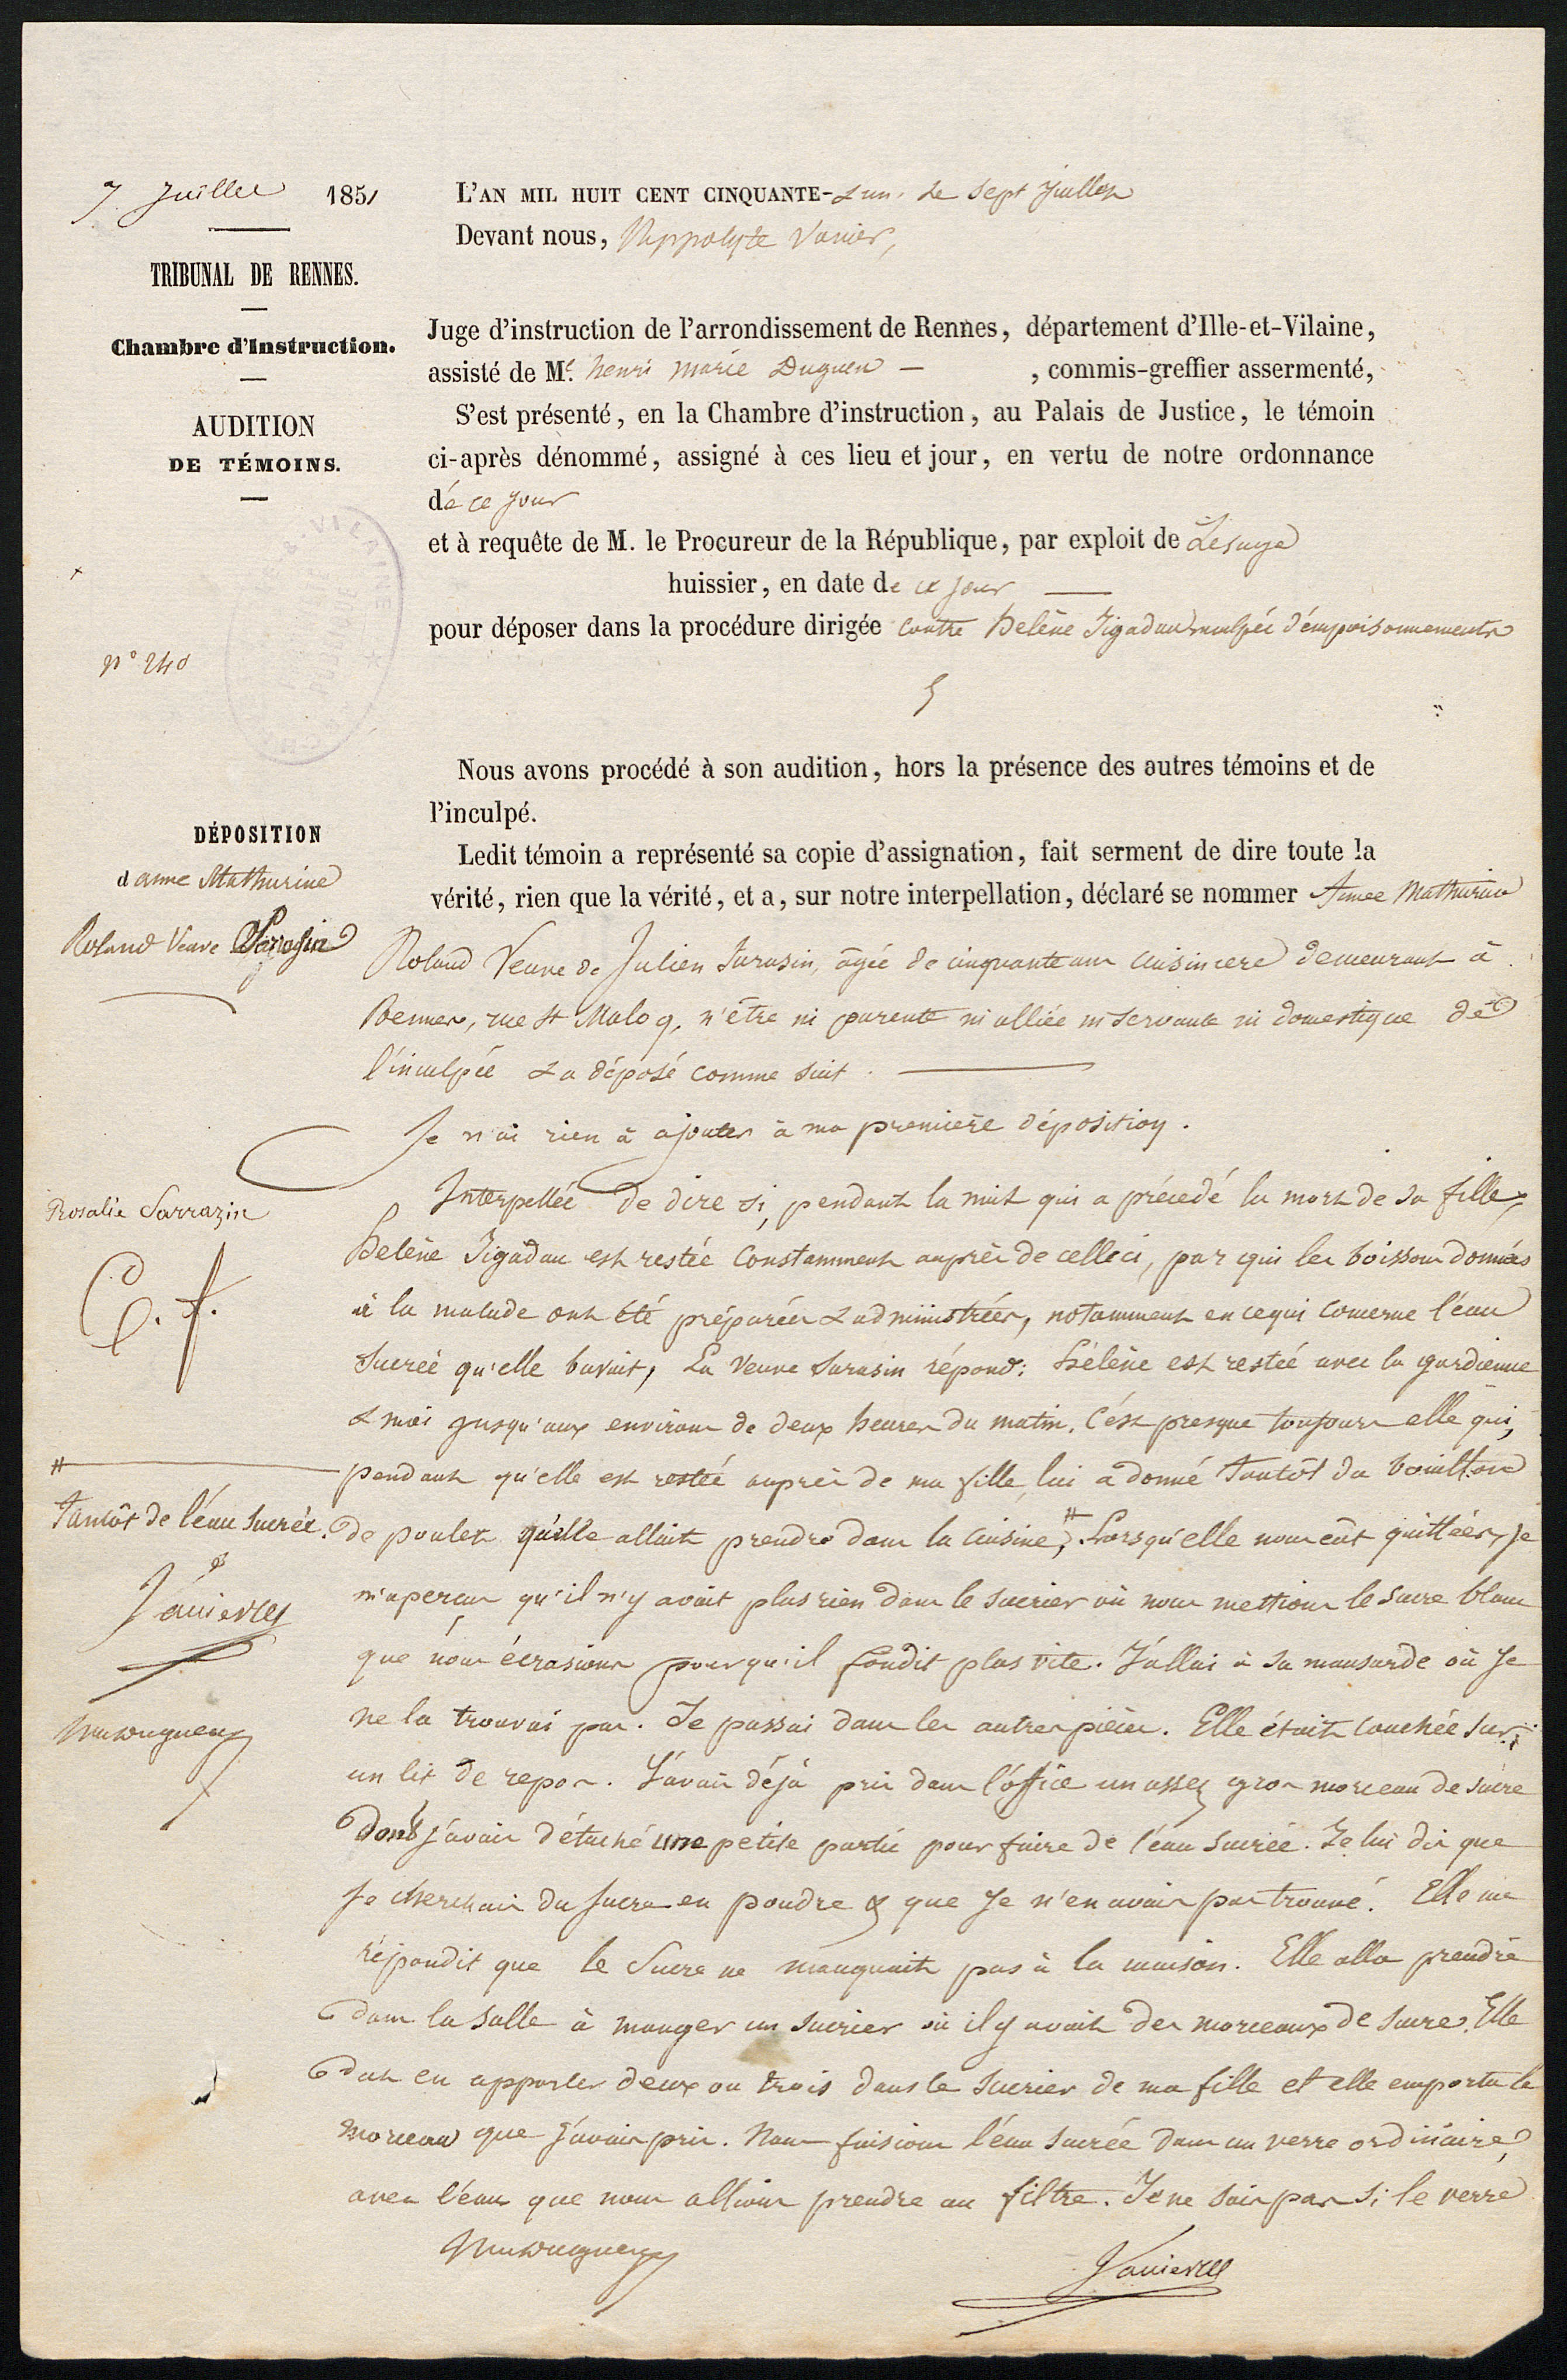 7 Juillet 1851
TRIBUNAL DE RENNES.
Chambre d'Instruction.
AUDITION
DE TÉMOINS.
n° 240
L'AN MIL HUIT CENT CINQUANTE-& un. Le sept Juillet
Devant nous, hyppolyte Vanier,
Juge d'instruction de l'arrondissement de Rennes, département d'Ille-et-Vilaine,
assisté de Me. henri marie Duguen — , commis-greffier assermenté,
S'est présenté, en la Chambre d'instruction, au Palais de Justice, le témoin
ci-après dénommé, assigné à ces lieu et jour, en vertu de notre ordonnance
de ce jour
et à requête de M. le Procureur de la République, par exploit de Lesage
huissier, en date de ce jour —
pour déposer dans la procédure dirigée contre helène Jégadau inculpée d'empoisonnements
Nous avons procédé à son audition, hors la présence des autres témoins et de
l'inculpé.
Ledit témoin a représenté sa copie d'assignation, fait serment de dire toute la
vérité, rien que la vérité, et a, sur notre interpellation, déclaré se nommer Anne Mathurine
DÉPOSITION
d'anne Mathurine
Roland Veuve Sarrazin
Roland Veuve de Julien Sarasin, âgée de cinquante ans cuisiniere demeurant à
Rennes, rue St Malo 9, n'être ni parente ni alliée ni servante ni domestique de
l'inculpée & a déposé comme suit. —
Je n'ai rien à ajouter à ma première déposition.
Rosalie Sarrazin
C. f.
Interpellée de dire si, pendant la nuit qui a précédé la mort de sa fille,
helène Jégadau est restée constamment auprès de celleci, par qui les boissons données
à la malade ont été préparées & administrées, notamment en cequi concerne l'eau
sucrée qu'elle buvait, La Veuve Sarasin répond: hélène est restée avec la gardienne
& moi jusqu'aux environs de deux heures du matin. C'est presque toujours elle qui,
pendant qu'elle est restée auprès de ma fille, lui a donné tantôt du bouillon
de poulet qu'elle allait prendre dans la cuisine, # Lorsqu'elle nous eût quittées, je
# tantôt de l'eau sucrée.
&
Vanier
hmduguen
m'aperçus qu'il n'y avait plus rien dans le sucrier où nous mettions le sucre blanc
que nous écrasions pour qu'il fondit plus vite. J'allai à sa mansarde où je
ne la trouvai pas. Je passai dans les autres pièces. Elle était couchée sur
un lit de repos. J'avais déjà pris dans l'office un assez gros morceau de sucre
dont j'avais détaché une petite partie pour faire de l'eau sucrée. Je lui dis que
je cherchais du sucre en poudre & que je n'en avais pas trouvé. Elle me
répondit que le Sucre ne manquait pas à la maison. Elle alla prendre
dans la salle à manger un sucrier où il y avait des morceaux de sucre. Elle
dut en apporter deux ou trois dans le sucrier de ma fille et elle emporta le
morceau que j'avais pris. Nous faisions l'eau sucrée dans un verre ordinaire,
avec l'eau que nous allions prendre au filtre. Je ne sais pas si le verre
hmduguen
Vanier